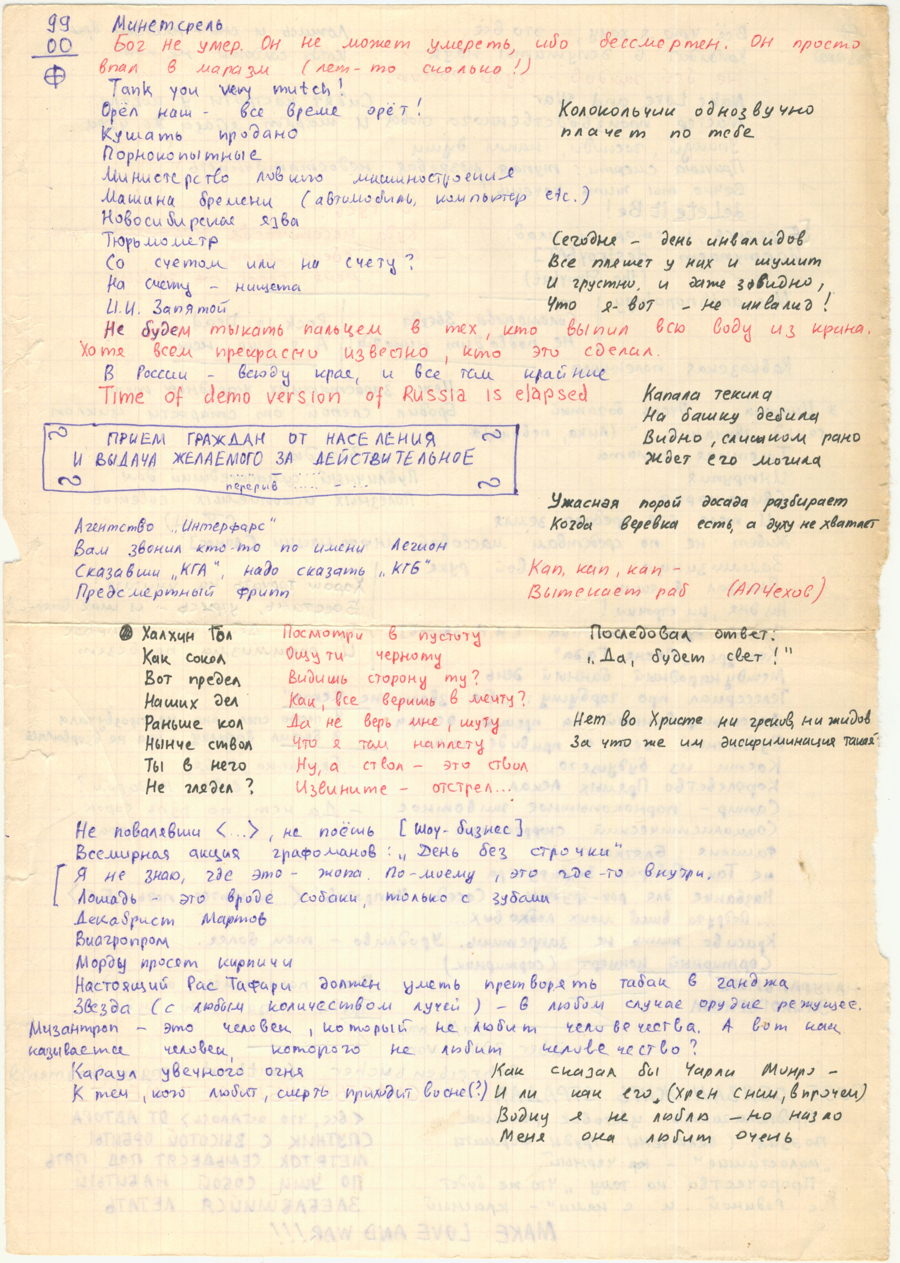 99
00
Минетсрель
Бог не умер. Он не может умереть, ибо бессмертен. Он просто
впал в маразм (лет-то сколько!)
Tank you very mutch!
Орёл наш - все время орёт!
Кушать продано
Порнокопытные
Министерство ловкого машиностроения
Машина бремени (автомобиль, компьютер etc.)
Новосибирская язва
Тюрьмометр
Со счетом или на счету?
На счету - нищета
И.И. Запятой
Колокольчик однозвучно
плачет по тебе
Сегодня - день инвалидов
Все пляшет у них и шумит
И грустно, и даже завидно,
Что я-вот - не инвалид!
Не будем тыкать пальцем в тех, кто выпил всю воду из крана.
Хотя всем прекрасно известно, кто это сделал.
В России - всюду края, и все там крайние
Time of demo version of Russia is elapsed
ПРИЕМ ГРАЖДАН ОТ НАСЕЛЕНИЯ
И ВЫДАЧА ЖЕЛАЕМОГО ЗА ДЕЙСТВИТЕЛЬНОЕ
перерыв
Капала текила
На башку дебила
Видно, слишком рано
Ждет его могила
Ужасная порой досада разбирает
Когда веревка есть, а духу не хватает
Агентство „Интерфарс"
Вам звонил кто-то по имени Легион
Сказавши „КГА", надо сказать „КГБ"
Предсмертный грипп
Кап, кап, кап -
Вытекает раб (АПЧехов)
Халхин Гол
Как сокол
Вот предел
Наших дел
Раньше кол
Нынче ствол
Ты в него
Не глядел?
Посмотри в пустоту
Ощути черноту
Видишь сторону ту?
Как, все веришь в мечту?
Да не верь мне, шуту
Что я там наплету
Ну, а ствол - это ствол
Извините - отстрел...
Последовал ответ:
„Да, будет свет!"
Нет во Христе ни греков, ни жидов
За что же им дискриминация такая
Не повалявши <...>, не поёшь [шоу-бизнес]
Всемирная акция графоманов: „День без строчки"
Я не знаю, где это - жопа. По-моему, это где-то внутри.
Лошадь - это вроде собаки, только с зубами
Декабрист Мартов
Виагропром
Морды просят кирпичи
Настоящий Рас Тафари должен уметь претворять табак в ганджа
Звезда (с любым количеством лучей) - в любом случае орудие режущее.
Мизантроп - это человек, который не любит человечества. А вот как
называется человек, которого не любит человечество?
Караул увечного огня
К тем, кого любит, смерть приходит во сне(?)
Как сказал бы Чарли Минро -
Или как его, (хрен с ним, впрочем)
Водку я не люблю - но назло
Меня она любит очень
MAKE LOVE AND WAR!!!